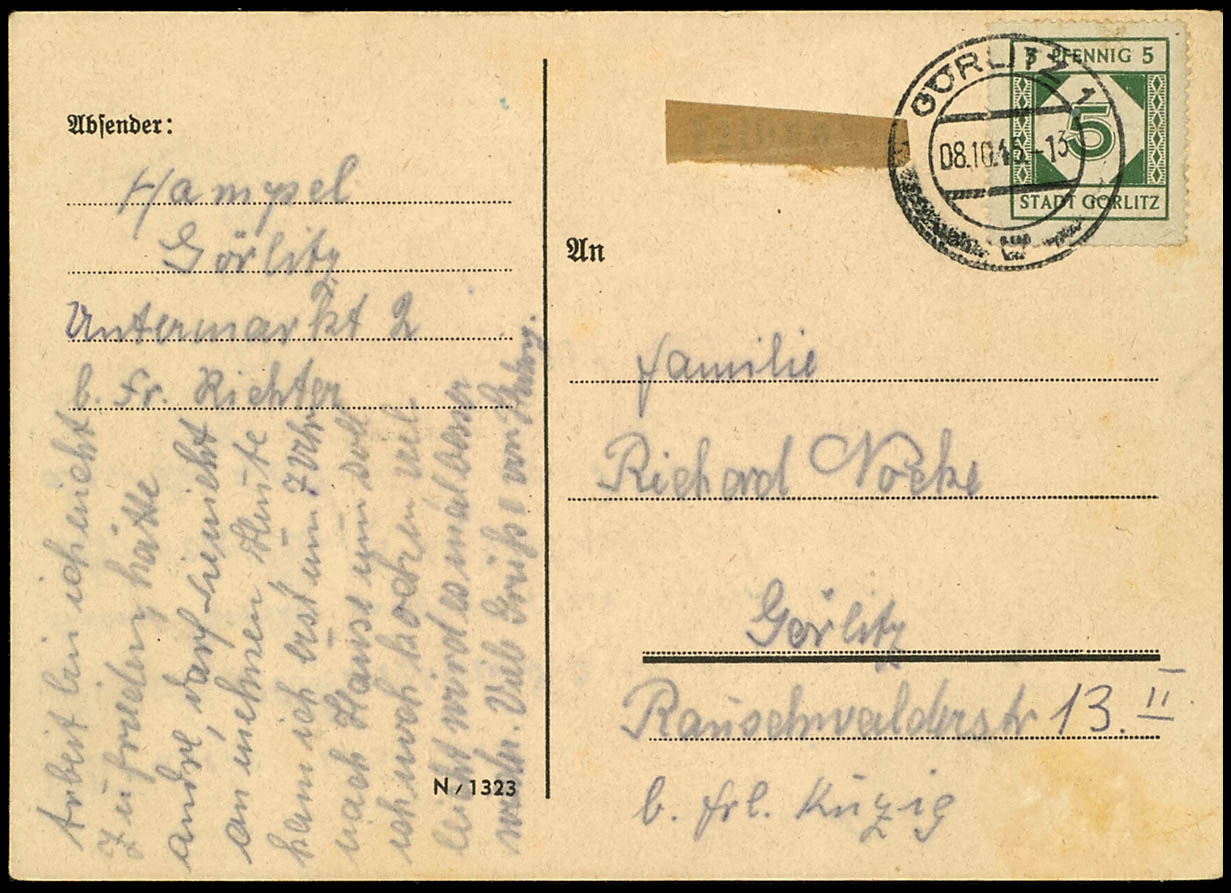 Absender:
Hampel
Görlitz
Untermarkt 2
b. Fr. Richter
Arbeit bin ich nicht
zufrieden, hätte
andre, darf sie nicht
annehmen. Heute
kam ich erst um 7 Uhr
nach Hause nun soll
ich noch kochen viel
leicht wird es mal besser
werden. Viele Grüße von
N/1323
5 PFENNIG 5
5
STADT GÖRLITZ
GÖRLITZ 1
08.10.45 - 13
An
Familie
Richard Nocke
Görlitz
Rauschwalderstr 13. II
b. Frl. Kuzig